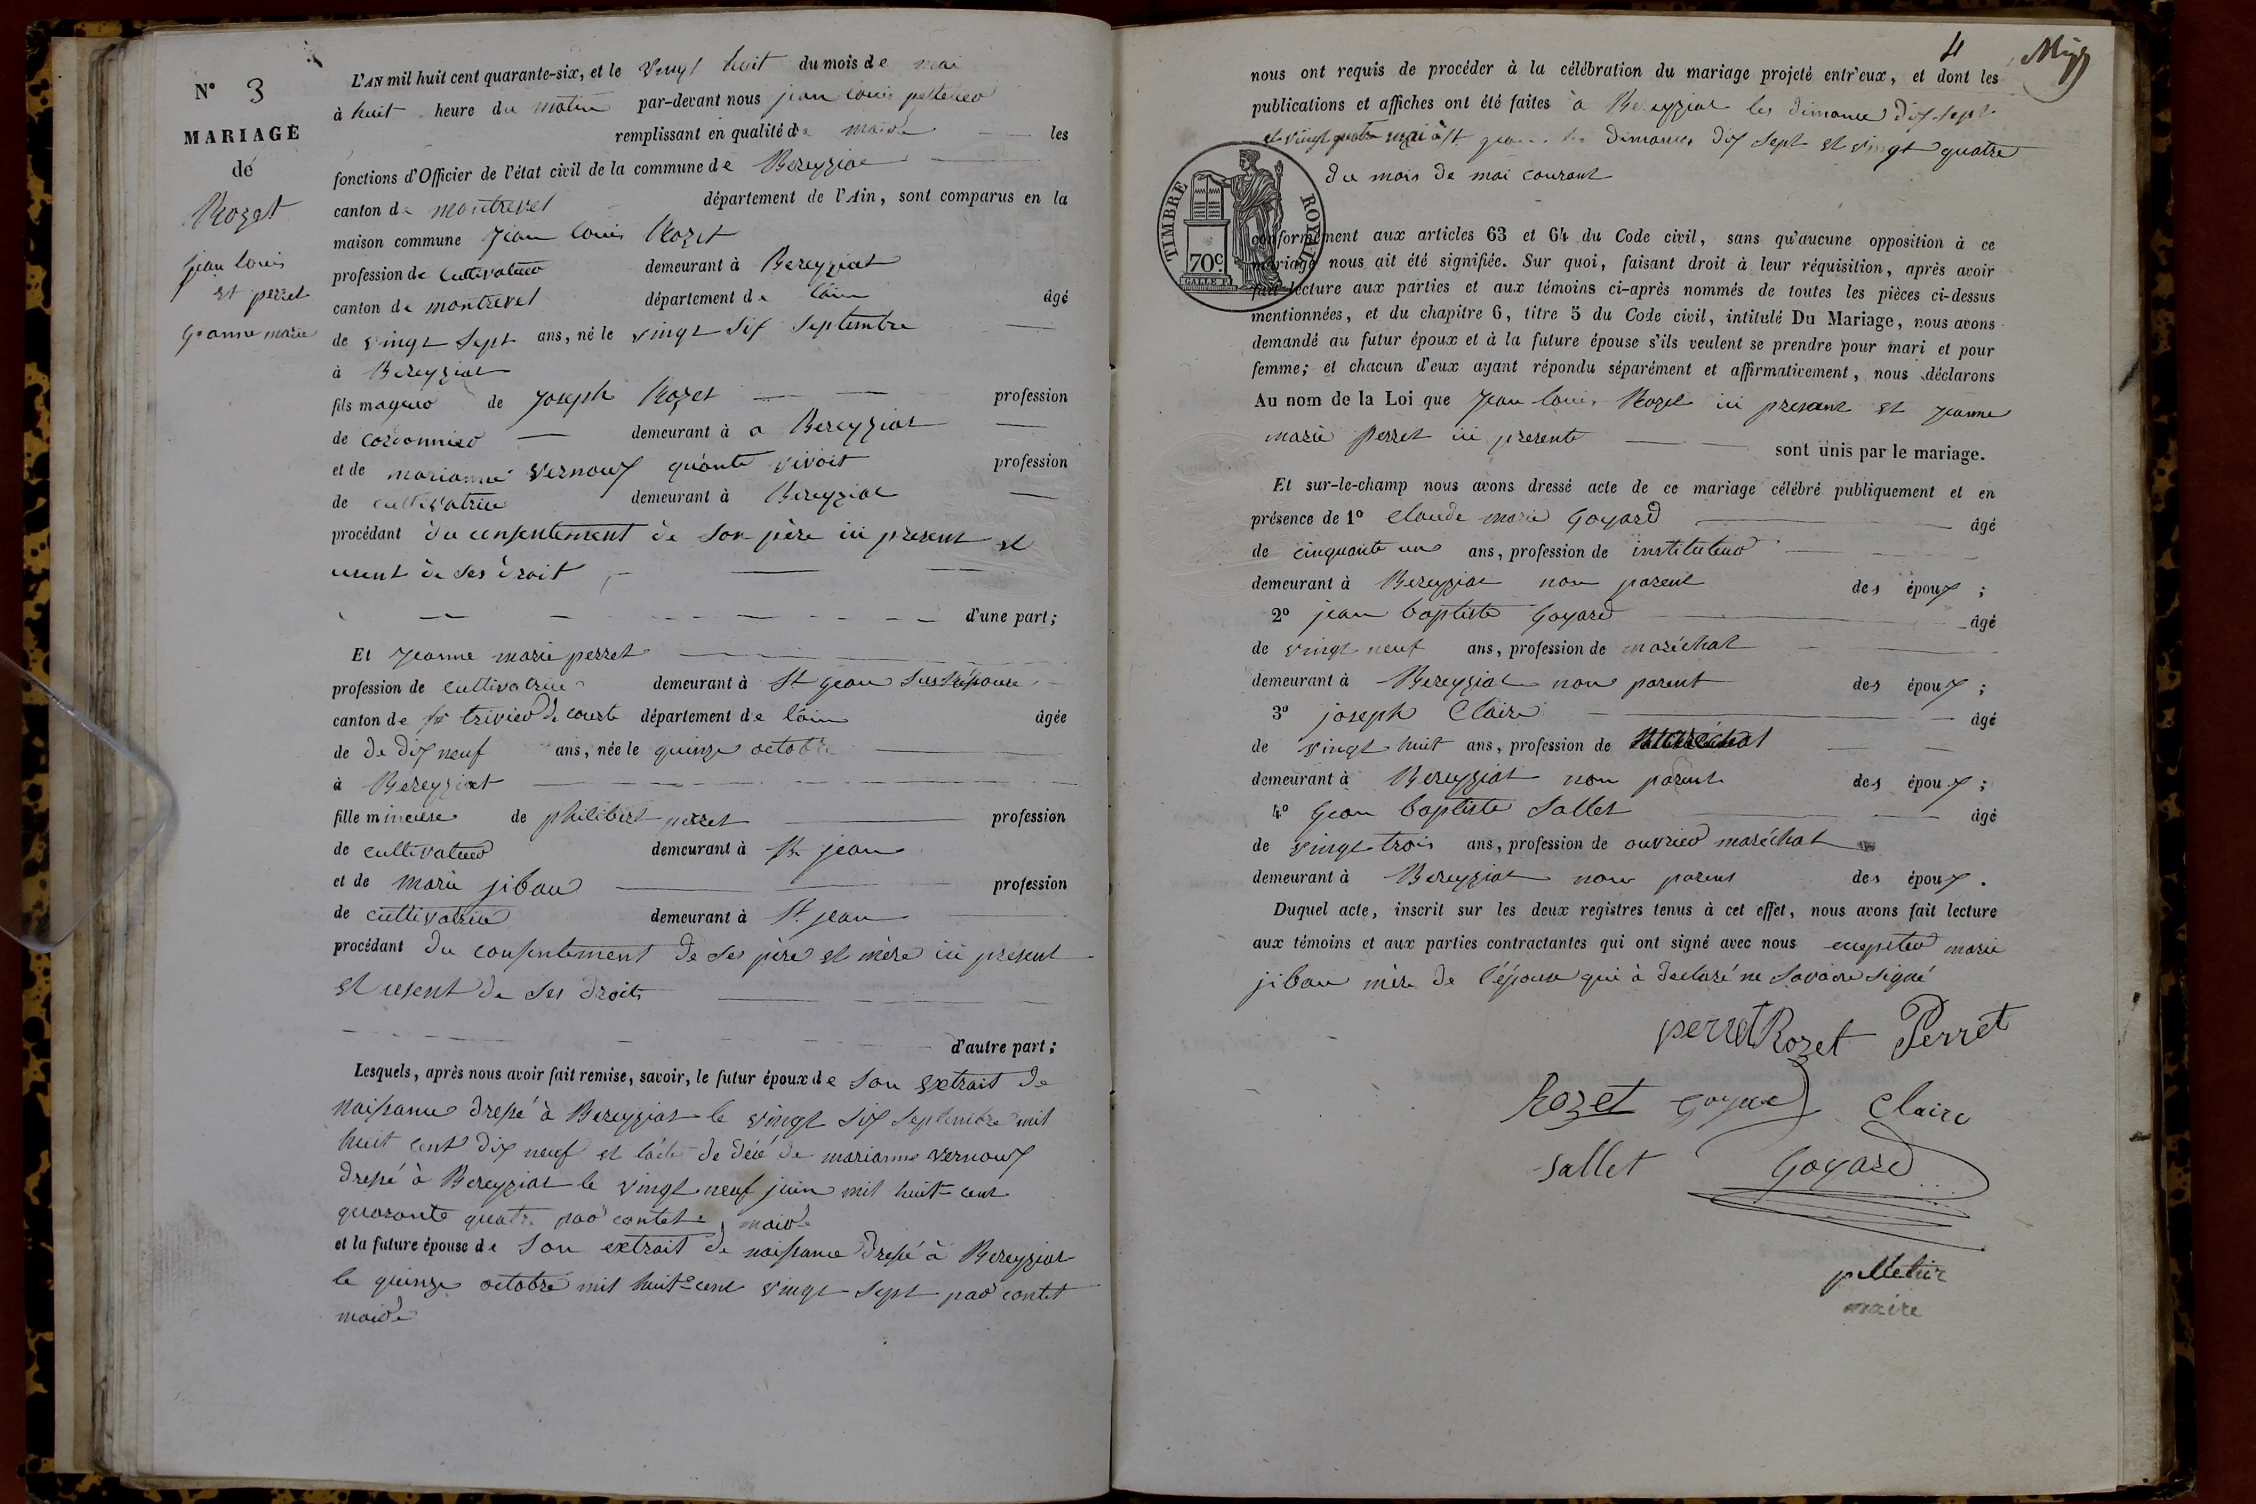 N° 3
MARIAGE
de
Rozet
jean louis
et perret
Jeanne marie
L'AN mil huit cent quarante-six, et le vingt huit du mois de mai
à huit heure du matin par-devant nous jean louis pelletier
remplissant en qualité de maire les
fonctions d'Officier de l'état civil de la commune de Bereyziat
canton de montrevel département de l'Ain, sont comparus en la
maison commune Jean louis Rozet
profession de cultivateur demeurant à Bereyziat
canton de montrevel département de lain âgé
de vingt sept ans, né le vingt six septembre
à Bereyziat
fils mageur de Joseph Rozet profession
de cordonnier demeurant à a Bereyziat
et de marianne vernoux quante vivoit profession
de cultivatrice demeurant à Bereyziat
procédant du consentement de son père ici present et
usent de ses droit
d'une part;
Et Jeanne marie perret
profession de cultivatrice demeurant à St Jean sur Reyssouze
canton de St trivier de courte département de lain âgée
de de dix neuf ans, née le quinze octobre
à Bereyziat
fille mineure de philibert perret profession
de cultivateur demeurant à St jean
et de marie jibau profession
de cultivatrice demeurant à St jean
procédant du consentement de ses père et mère ici présent
et usent de ses droits
d'autre part;
Lesquels, après nous avoir fait remise, savoir, le futur époux de son extrait de
naissance dressé à Bereyziat le vingt six septembre mil
huit cent dix neuf et lacte de décé de marianne vernoux
dressé à Bereyziat le vingt neuf juin mil huit cent
quarante quatre par contet maire
et la future épouse de son extrait de naissance dressé à Bereyziat
le quinze octobre mil huit cent vingt sept par contet
maire
4
nous ont requis de procéder à la célébration du mariage projeté entr'eux, et dont les
publications et affiches ont été faites à Bereyziat les dimance dix sept
et vingt quatre mai à St jean les dimances dix sept et vingt quatre
du mois de mai courant
TIMBRE ROYAL
70c.
conformément aux articles 63 et 64 du Code civil, sans qu'aucune opposition à ce
mariage nous ait été signifiée. Sur quoi, faisant droit à leur réquisition, après avoir
fait lecture aux parties et aux témoins ci-après nommés de toutes les pièces ci-dessus
mentionnées, et du chapitre 6, titre 5 du Code civil, intitulé Du Mariage, nous avons
demandé au futur époux et à la future épouse s'ils veulent se prendre pour mari et pour
femme; et chacun d'eux ayant répondu séparément et affirmativement, nous déclarons
Au nom de la Loi que Jean louis Rozet ici present et Jeanne
marie perret ici presente sont unis par le mariage.
Et sur-le-champ nous avons dressé acte de ce mariage célébré publiquement et en
présence de 1° Claude marie Goyard âgé
de cinquante un ans, profession de instituteur
demeurant à Bereyziat non parent des époux;
2° jean baptiste Goyard âgé
de vingt neuf ans, profession de maréchal
demeurant à Bereyziat non parent des époux;
3° joseph Claire âgé
de vingt huit ans, profession de maréchal
demeurant à Bereyziat non parent des époux;
4° Jean baptiste Sallet âgé
de vingt trois ans, profession de ouvrier maréchal
demeurant à Bereyziat non parent des époux.
Duquel acte, inscrit sur les deux registres tenus à cet effet, nous avons fait lecture
aux témoins et aux parties contractantes qui ont signé avec nous marie
jibau mère de l'épouse qui à declaré ne savoire signé
perret Rozet Perret
Rozet Goyard Claire
Sallet Goyard
pelletier
maire